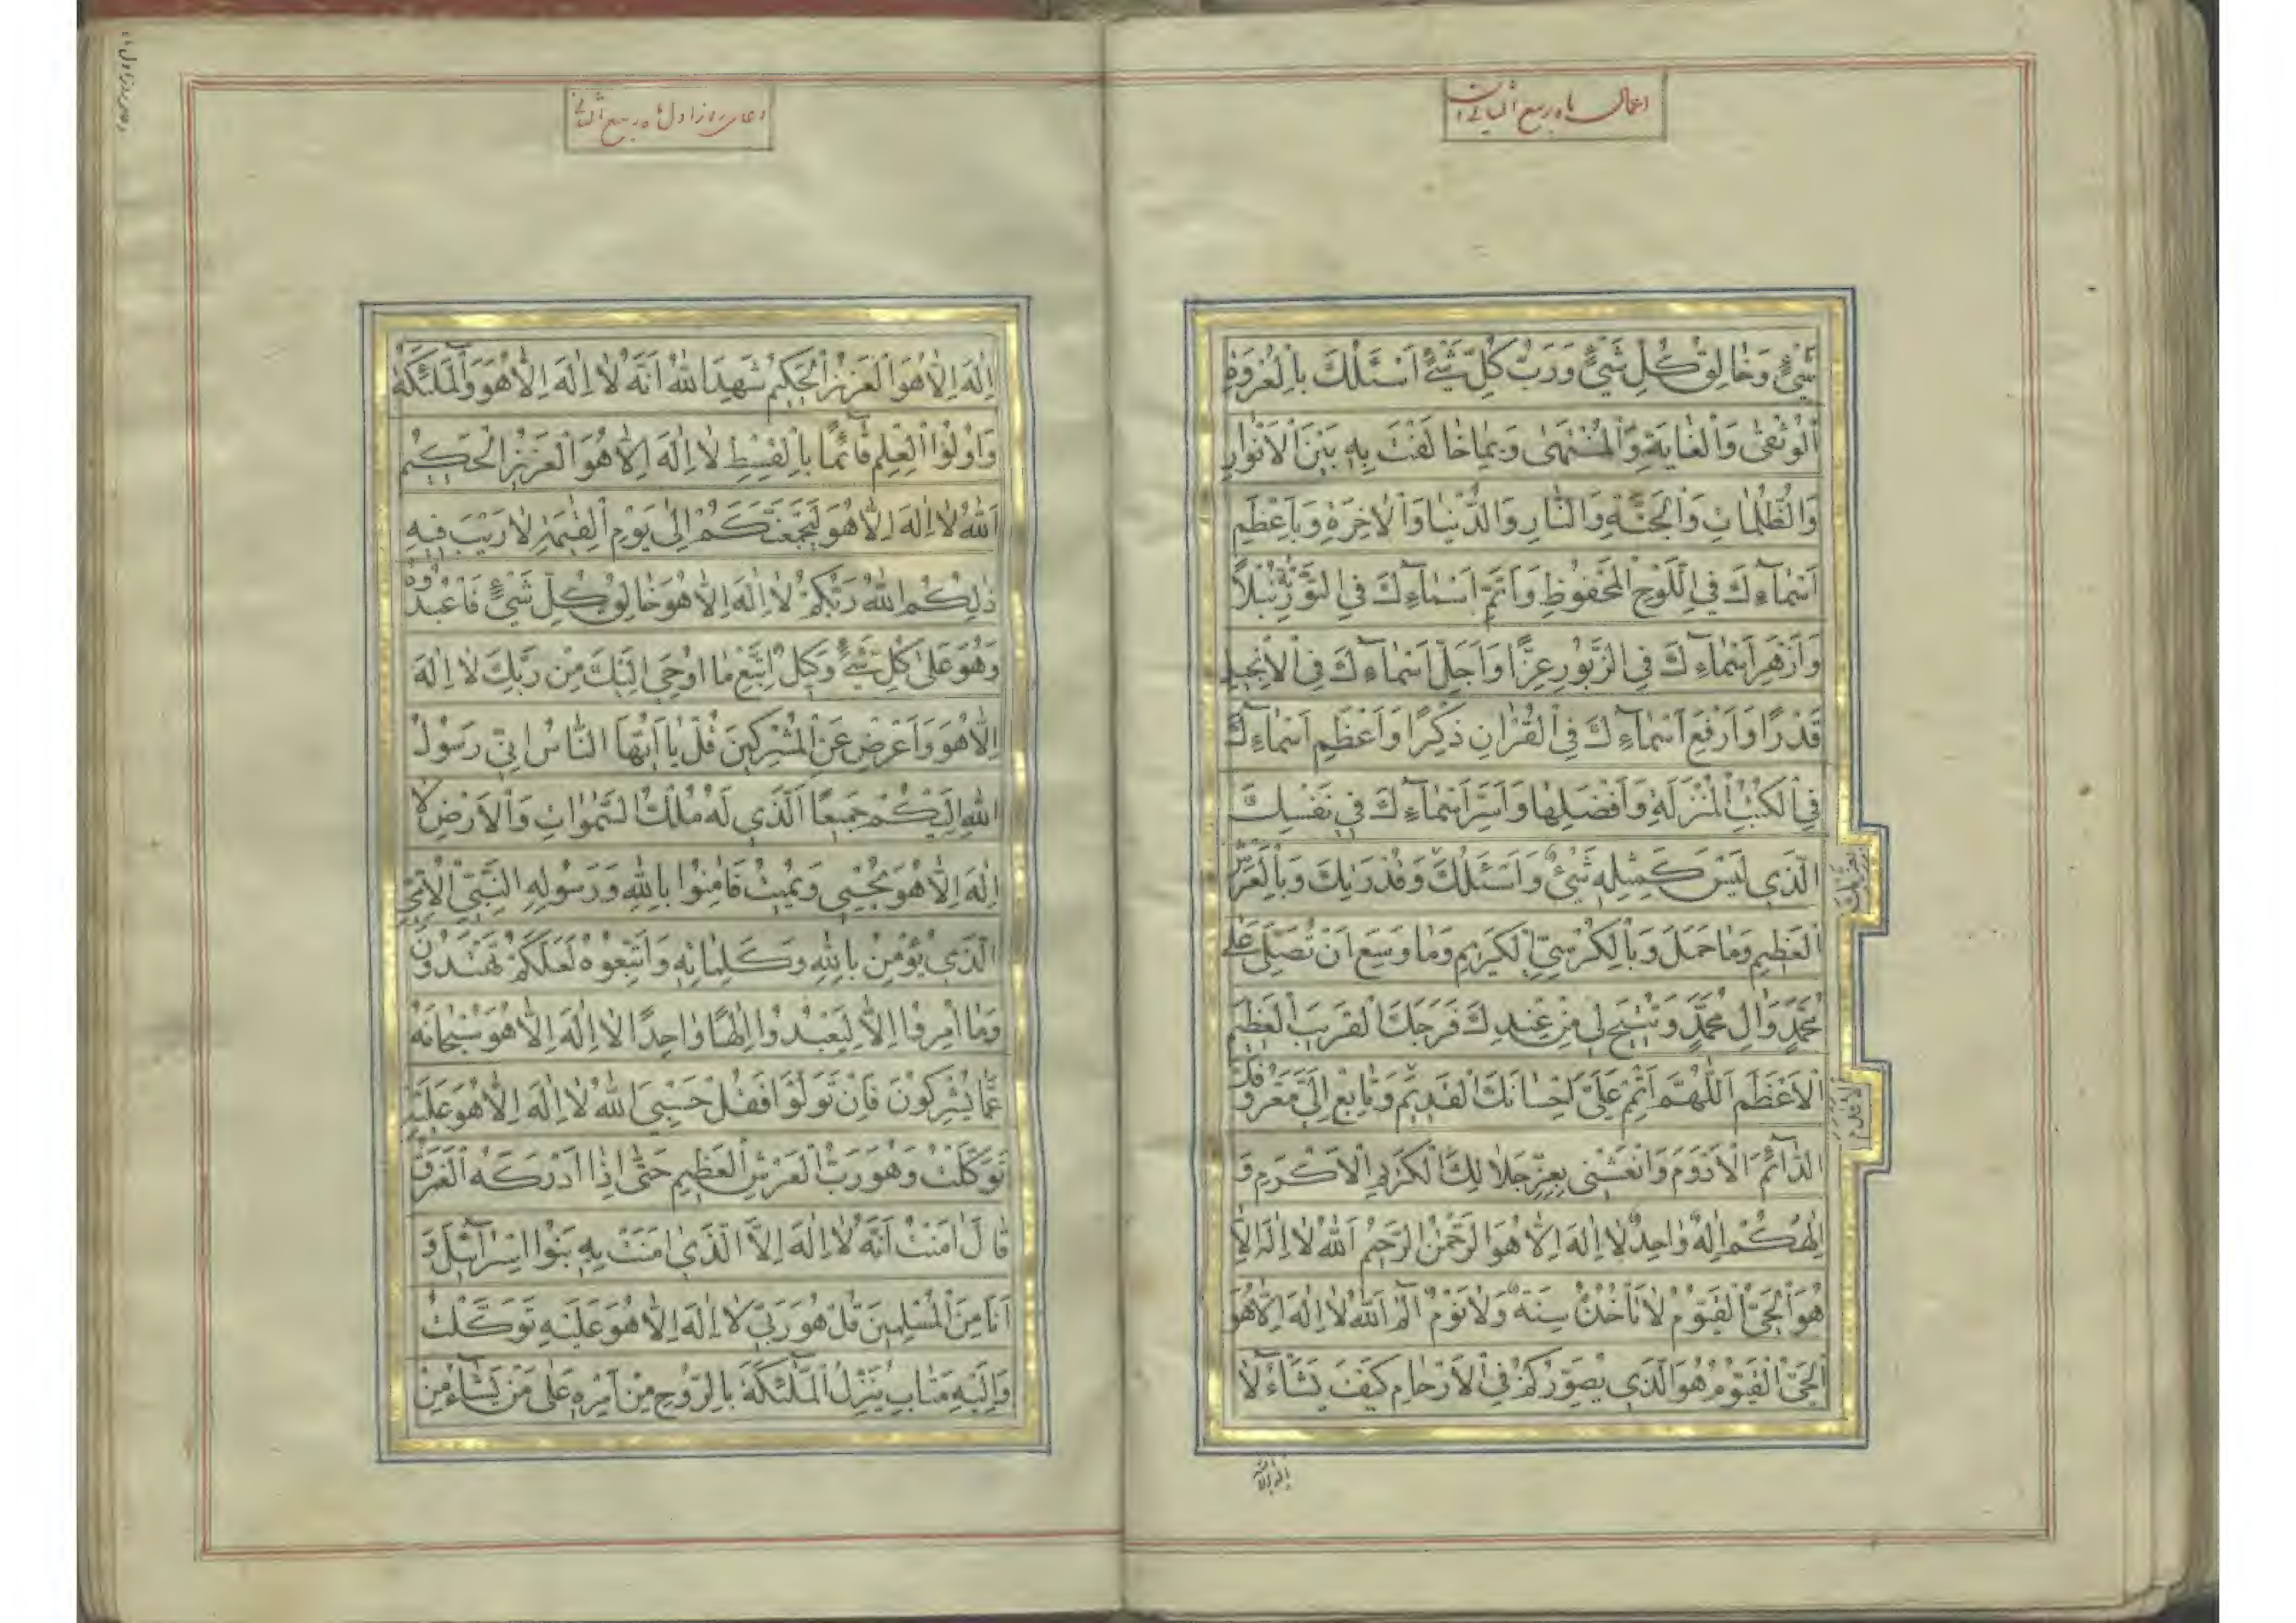 اعمال ماه ربیع الثانی
شَيْءٍ وَخٰالِقَ كُلِّ شَيْءٍ وَرَبَّ كُلِّ شَيْءٍ اَسْئَلُكَ بِالْعُرْوَةِ
الْوُثْقىٰ وَالْغٰايَةِ وَالْمُنْتَهىٰ وَبِمٰا خٰالَفْتَ بِهِ بَيْنَ الْاَنْوٰارِ
وَالظُّلُمٰاتِ وَالْجَنَّةِ وَالنّٰارِ وَالدُّنْيٰا وَالْاٰخِرَةِ وَبِاَعْظَمِ
اَسْمٰآءِكَ فِي اللَّوْحِ الْمَحْفُوظِ وَاَتَمِّ اَسْمٰآءِكَ فِي التَّوْرٰيةِ نُبْلًا
وَاَزْهَرِ اَسْمٰآءِكَ فِي الزَّبُورِ عِزًّا وَاَجَلِّ اَسْمٰآءِكَ فِي الْاِنْجِيلِ
قَدْرًا وَاَرْفَعِ اَسْمٰآءِكَ فِي الْقُرْاٰنِ ذِكْرًا وَاَعْظَمِ اَسْمٰآءِكَ
فِي الْكُتُبِ الْمُنْزَلَةِ وَاَفْضَلِهٰا وَاَسَرِّ اَسْمٰآءِكَ فِي نَفْسِكَ
الَّذِي لَيْسَ كَمِثْلِهِ شَيْءٌ وَاَسْئَلُكَ وَقُدْرَتِكَ وَبِالْعَرْشِ
الْعَظِيمِ وَمٰا حَمَلَ وَبِالْكُرْسِيِّ الْكَرِيمِ وَمٰا وَسِعَ اَنْ تُصَلِّيَ عَلىٰ
مُحَمَّدٍ وَاٰلِ مُحَمَّدٍ وَتُبِيحَ لِي مِنْ عِنْدِكَ فَرَجَكَ الْقَرِيبَ الْعَظِيمَ
الْاَعْظَمَ اَللّٰهُمَّ اَتْمِمْ عَلَيَّ اِحْسٰانَكَ الْقَدِيمَ وَتٰابِعْ اِلَيَّ مَعْرُوفَكَ
الدّٰآئِمَ الْاَدْوَمَ وَانْعَشْنِي بِعِزِّ جَلٰالِكَ الْكَرِيمِ الْاَكْرَمِ وَ
اِلٰهُكُمْ اِلٰهٌ وٰاحِدٌ لٰا اِلٰهَ اِلّٰا هُوَ الرَّحْمٰنُ الرَّحِيمُ اَللّٰهُ لٰا اِلٰهَ اِلّٰا
هُوَ الْحَيُّ الْقَيُّومُ لٰا تَأْخُذُهُ سِنَةٌ وَلٰا نَوْمٌ الٓمٓ اَللّٰهُ لٰا اِلٰهَ اِلّٰا هُوَ
الْحَيُّ الْقَيُّومُ هُوَ الَّذِي يُصَوِّرُكُمْ فِي الْاَرْحٰامِ كَيْفَ يَشٰآءُ لٰا
اِلٰهَ اِلّٰا
دعای روز اول ماه ربیع الثانی
اِلٰهَ اِلّٰا هُوَ الْعَزِيزُ الْحَكِيمُ شَهِدَ اللّٰهُ اَنَّهُ لٰا اِلٰهَ اِلّٰا هُوَ وَالْمَلٰٓئِكَةُ
وَاُولُوا الْعِلْمِ قٰآئِمًا بِالْقِسْطِ لٰا اِلٰهَ اِلّٰا هُوَ الْعَزِيزُ الْحَكِيمُ
اَللّٰهُ لٰا اِلٰهَ اِلّٰا هُوَ لَيَجْمَعَنَّكُمْ اِلىٰ يَوْمِ الْقِيٰمَةِ لٰا رَيْبَ فِيهِ
ذٰلِكُمُ اللّٰهُ رَبُّكُمْ لٰا اِلٰهَ اِلّٰا هُوَ خٰالِقُ كُلِّ شَيْءٍ فَاعْبُدُوهُ
وَهُوَ عَلىٰ كُلِّ شَيْءٍ وَكِيلٌ اِتَّبِعْ مٰا اُوحِيَ اِلَيْكَ مِنْ رَبِّكَ لٰا اِلٰهَ
اِلّٰا هُوَ وَاَعْرِضْ عَنِ الْمُشْرِكِينَ قُلْ يٰا اَيُّهَا النّٰاسُ اِنِّي رَسُولُ
اللّٰهِ اِلَيْكُمْ جَمِيعًا الَّذِي لَهُ مُلْكُ السَّمٰوٰاتِ وَالْاَرْضِ لٰا
اِلٰهَ اِلّٰا هُوَ يُحْيِي وَيُمِيتُ فَاٰمِنُوا بِاللّٰهِ وَرَسُولِهِ النَّبِيِّ الْاُمِّيِّ
الَّذِي يُؤْمِنُ بِاللّٰهِ وَكَلِمٰاتِهِ وَاتَّبِعُوهُ لَعَلَّكُمْ تَهْتَدُونَ
وَمٰا اُمِرُوا اِلّٰا لِيَعْبُدُوا اِلٰهًا وٰاحِدًا لٰا اِلٰهَ اِلّٰا هُوَ سُبْحٰانَهُ
عَمّٰا يُشْرِكُونَ فَاِنْ تَوَلَّوْا فَقُلْ حَسْبِيَ اللّٰهُ لٰا اِلٰهَ اِلّٰا هُوَ عَلَيْهِ
تَوَكَّلْتُ وَهُوَ رَبُّ الْعَرْشِ الْعَظِيمِ حَتّٰى اِذٰا اَدْرَكَهُ الْغَرَقُ
قٰالَ اٰمَنْتُ اَنَّهُ لٰا اِلٰهَ اِلَّا الَّذِي اٰمَنَتْ بِهِ بَنُوا اِسْرٰآئِيلَ وَ
اَنَا مِنَ الْمُسْلِمِينَ قُلْ هُوَ رَبِّي لٰا اِلٰهَ اِلّٰا هُوَ عَلَيْهِ تَوَكَّلْتُ
وَاِلَيْهِ مَتٰابِ يُنَزِّلُ الْمَلٰٓئِكَةَ بِالرُّوحِ مِنْ اَمْرِهِ عَلىٰ مَنْ يَشٰآءُ مِنْ